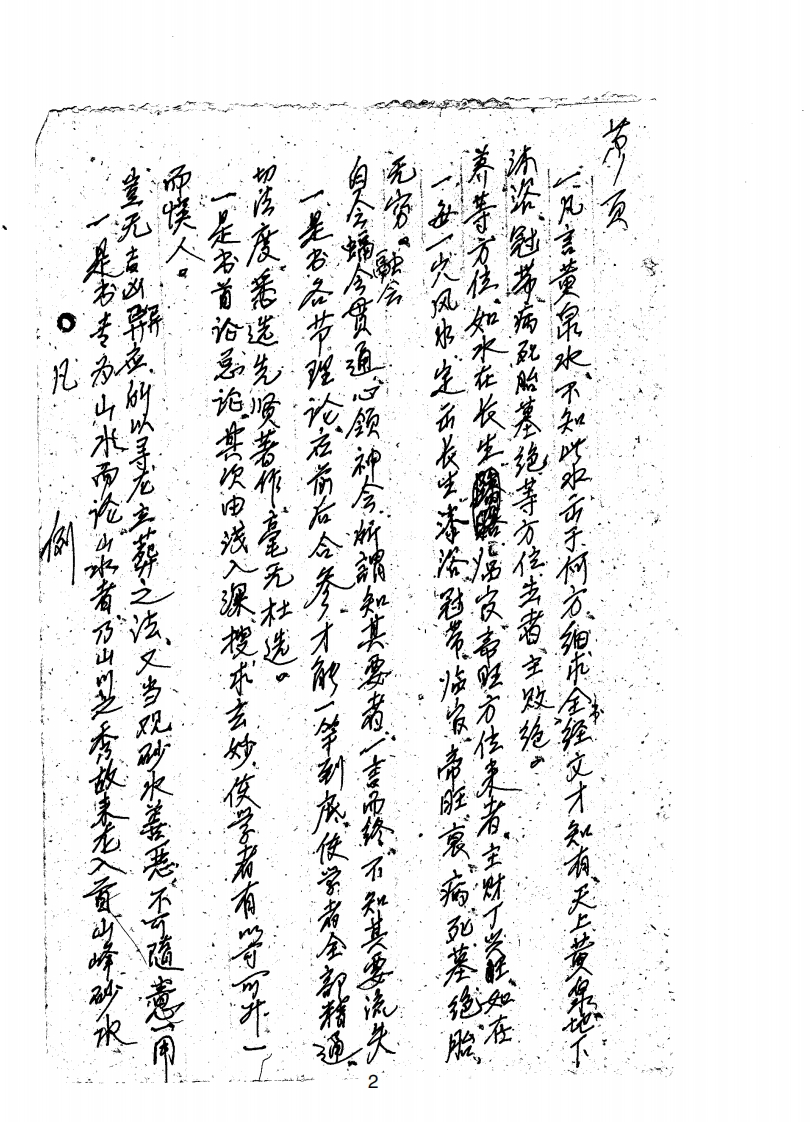 凡 例
一是书专为山水而论山水者乃山川之秀故来龙入首山峰砂水
岂无吉凶异应、所以寻龙立葬之法、又当观砂水善恶、不可随意用
而悮人。
一是书首论总论、其次由浅入深搜求玄妙、使学者有以寻一
切法度、悉选先贤著作、毫无杜选。
一是书各节理论、应前后合参、才能一竿到底、使学者全部精通、
自会融会贯通、心领神会、所謂知其要者、一言而终、不知其要流失
无穷。
一每一穴风水、定示长生、沐浴、冠带、临官、帝旺、衰、病、死、墓、绝、胎、
养等方位、如水在长生临官帝旺方位来者、主财丁兴旺、如在
沐浴、冠带病死胎墓绝等方位去者主败绝。
一凡言黄泉水、不知此水示于何方、细求全书经文才知有天上黄泉地下
第 页
2